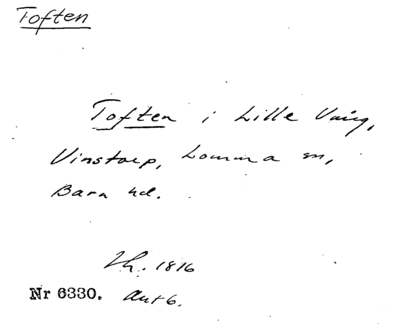 Toften
Toften i Lille Vång,
Vinstorp, Lomma sn,
Bara hd.
Lh. 1816
Nr 6330. Akt 6.